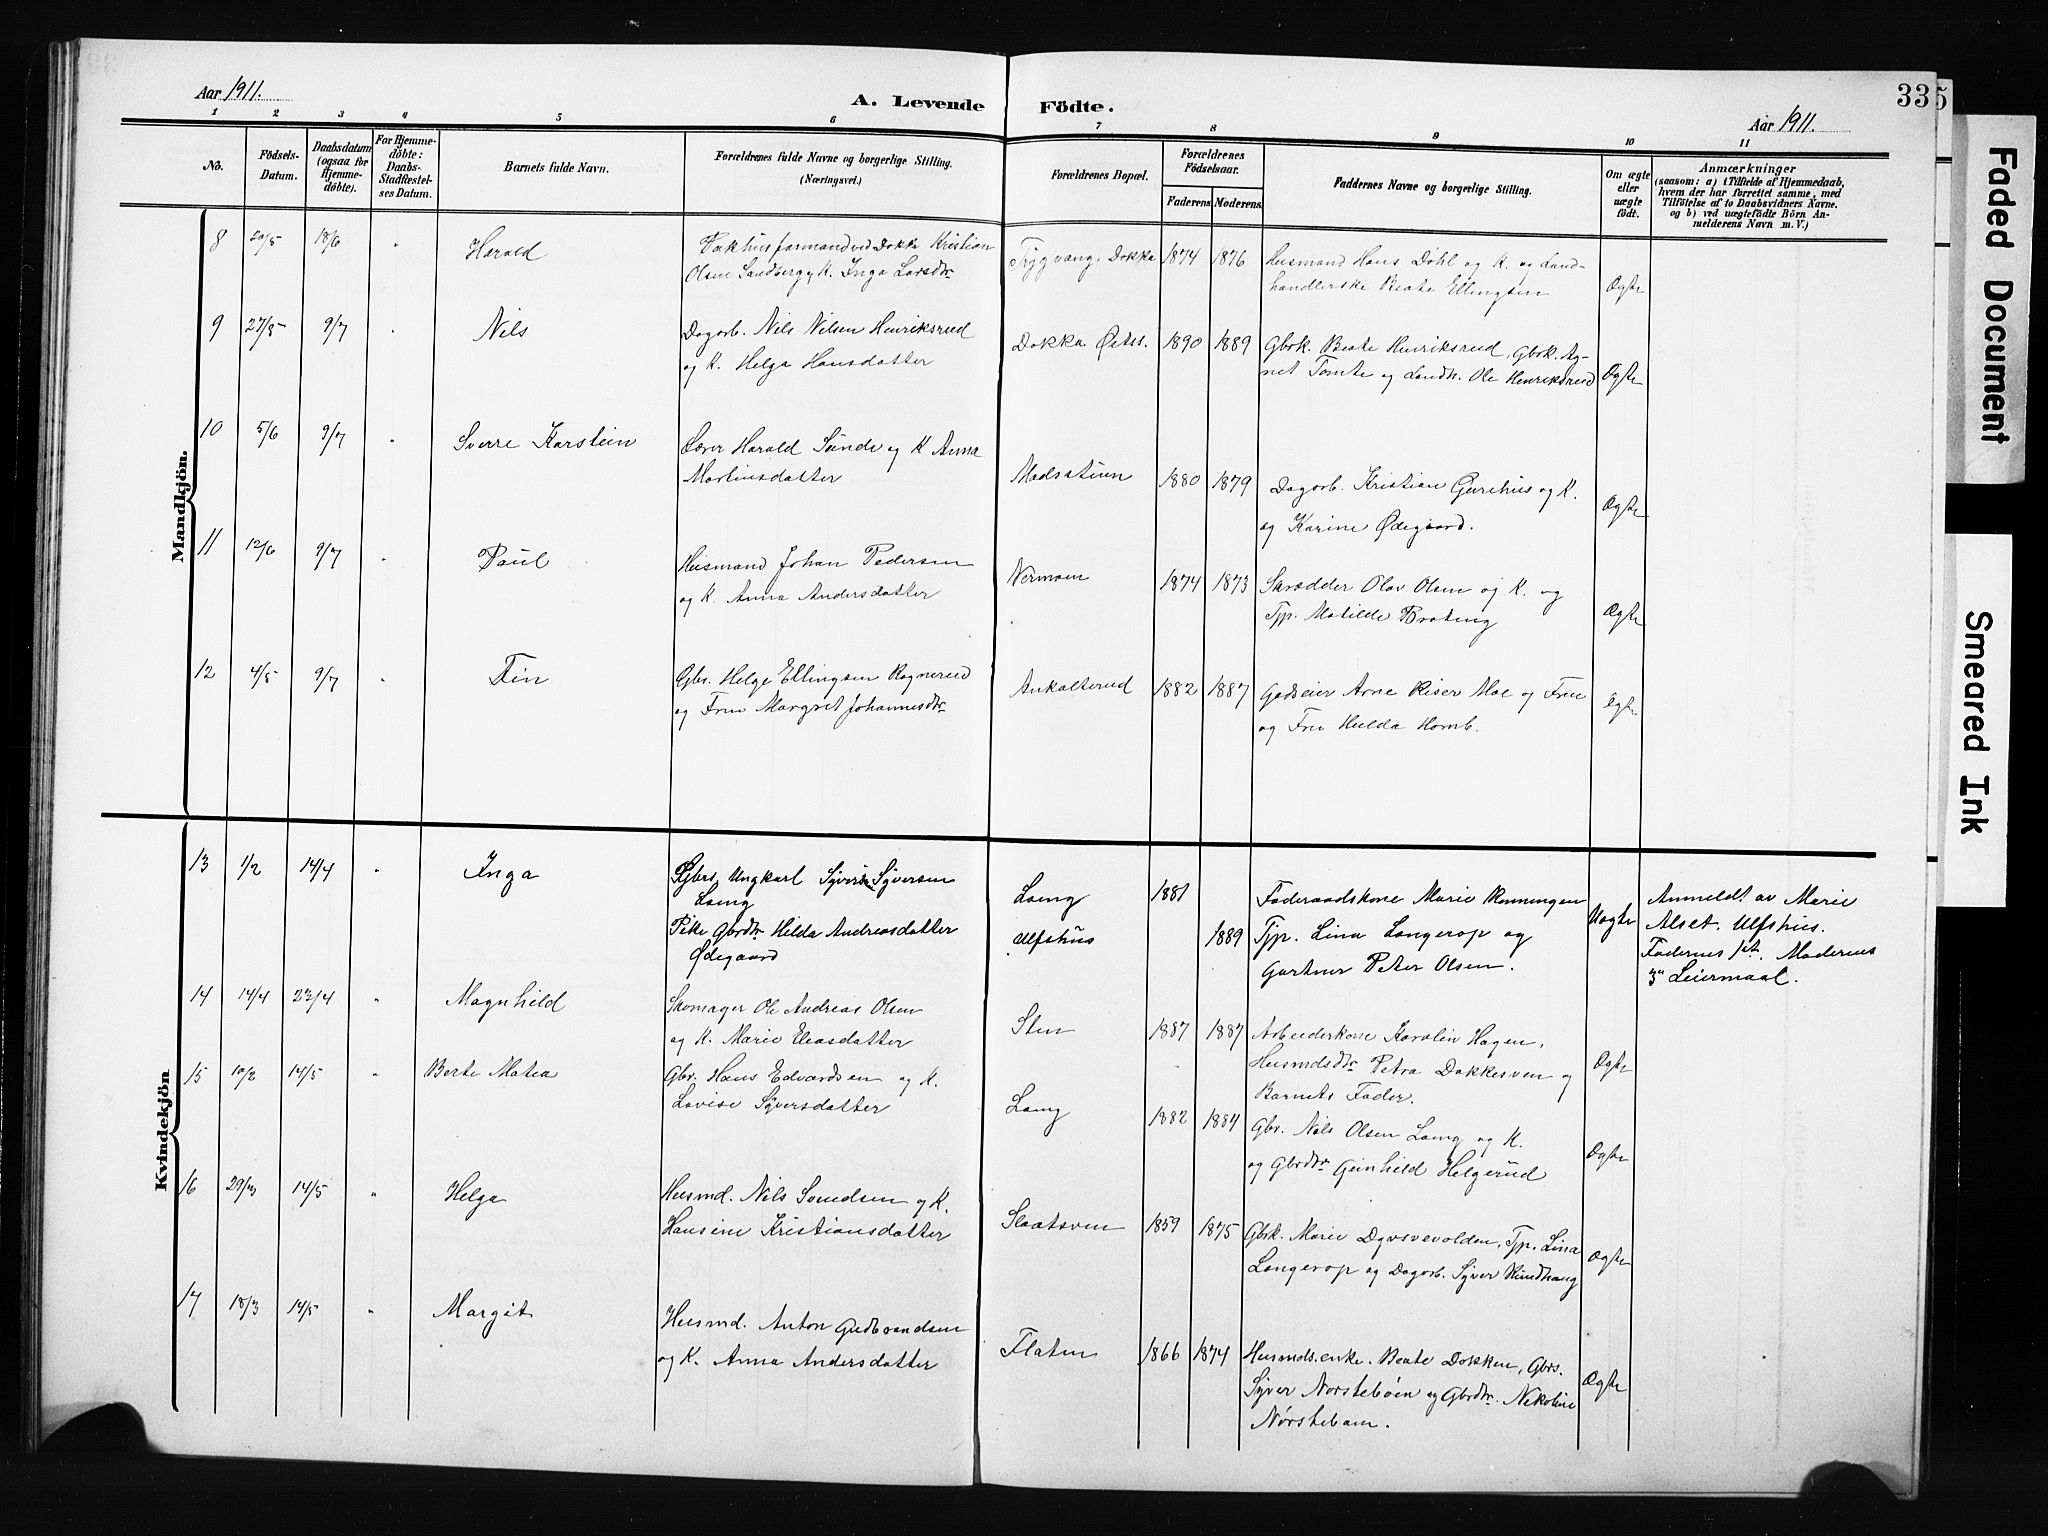 Aar 1911.
A. Levende Födte.
Aar 1911.
33
5
1 2 3 4 5 6 7 8 9 10 11
No.
Födsels-Datum.
Daabsdatum (ogsaa for Hjemmedöbte).
For Hjemmedöbte: Daabs-Stadfæstelses Datum.
Barnets fulde Navn.
Forældrenes fulde Navne og borgerlige Stilling. (Næringsvei.)
Forældrenes Bopæl.
Forældrenes Födselsaar.
Faderens. Moderens.
Faddernes Navne og borgerlige Stilling.
Om ægte eller uægte födt.
Anmærkninger
(saasom: a) i Tilfælde af Hjemmedaab,
hvem der har forrettet samme, med
Tilföielse af to Daabsvidners Navne,
og b) ved uægtefödte Börn An-
melderens Navn m. V.)
Mandkjön.
8 20/5 18/6 " Harald
Pakhusformand ved Dokka Kristian
Olsen Sandberg, K. Inga Larsdtr
Trygvang, Dokka 1874 1876
Husmand Hans Döhl og K. og Land-
handlerske Beate Ellingsen
Ægte
9 27/5 9/7 " Nils
Dagarb. Nils Nilsen Henriksrud
og K. Helga Hansdatter
Dokka Østss. 1890 1889
Gbrk. Beate Henriksrud, Gbrk. Ag-
net Tomte og Landh. Ole Henriksrud
Ægte
10 5/6 9/7 " Sverre Karstein
Lærer Harald Sünde og K Anna
Martinsdatter
Madsstuen 1880 1879
Dagarb. Kristian Gurihus og K.
og Karine Ødegaard.
Ægte
11 12/6 9/7 " Paul
Husmand Johan Pedersen
og K. Anna Andersdatter
Nermoen 1874 1873
Skrædder Olav Olsen og K. og
Tjp. Matilde Brateng
Ægte
12 4/5 9/7 " Fin
Gbr. Helge Ellingsen Rognerud
og Frue Margret Johannesdtr
Ankalterud 1882 1887
Godseier Arne Riser Moe og Frue
og Frue Hulda Homb.
Ægte
Kvindekjön
13 1/2 14/4 " Inga
Gbrs. Ungkarl Syver Syversen
Laeng
Pike Gbrdtr Hilda Andreasdatter
Ødegaard
Laeng 1881
Ulfshus 1889
Föderaadskone Marie Rönningen
Tjp. Lina Langerop og
Gartner Peter Olsen.
Uægte
Anmeldt av Marie
Alset. Ulfshus.
Faderens 1st. Moderens
3" Leiermaal.
14 14/4 23/4 " Magnhild
Skomager Ole Andreas Olsen
og K. Marie Eliasdatter
Sten 1887 1887
Arbeiderkone Karolin Hagen,
Husmdsdtr Petra Dokkesven og
Barnets Fader.
Ægte
15 10/2 14/5 " Berte Matea
Gbr. Hans Edvardsen og K.
Lovise Syversdatter
Laeng 1882 1884
Gbr. Nils Olsen Laeng og K.
og Gbrdtr Gunhild Helgerud
Ægte
16 29/3 14/5 " Helga
Husmd. Nils Svendsen og K.
Hansine Kristiansdatter
Slaatsven 1859 1875
Gbrk. Marie Dyvsvevolden, Tjp. Lina
Langerop og Dagarb. Syver Rundhaug
Ægte
17 18/3 14/5 " Margit
Husmd. Anton Gudbrandsen
og K. Anna Andersdatter
Flaten 1866 1874
Husmds.enke. Beate Dokken, Gbrs.
Syver Norsteböen og Gbrdtr. Nikoline
Nørsteböen.
Ægte
Faded Document
Smeared Ink